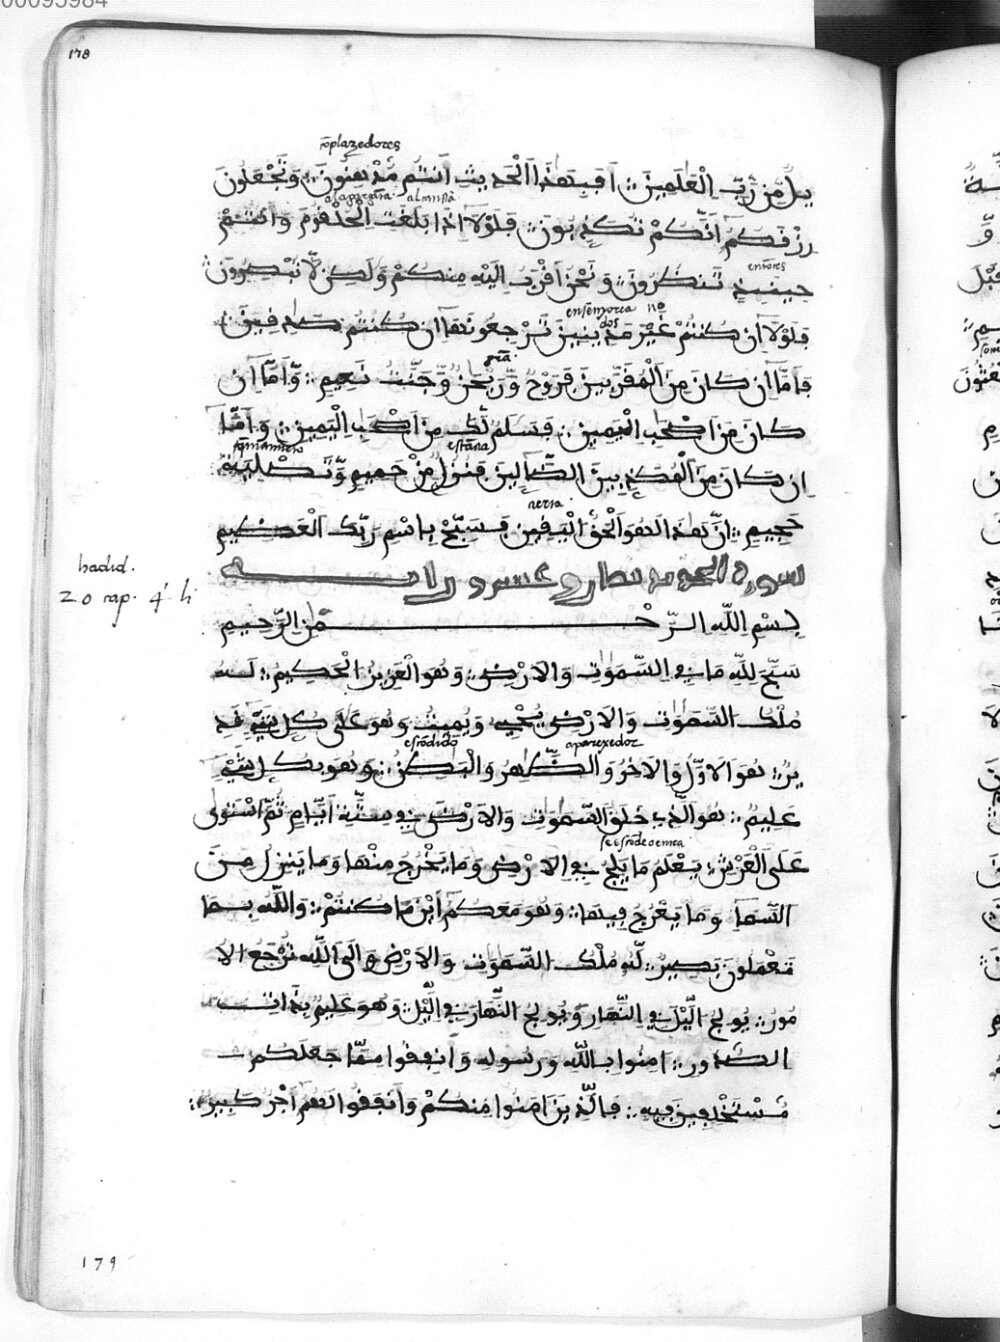 00095984
178
9plazedores
يلٌ مِّن رَّبِّ الْعَلَمِينَ أَفَبِهَذَا الْحَدِيثِ أَنتُم مُّدْهِنُونَ وَتَجْعَلُونَ
رِزْقَكُمُ أَنَّكُمْ تُكَذِّبُونَ فَلَوْلَا إِذَا بَلَغَتِ الْحُلْقُومَ وَأَنتُمْ
حِينَئِذٍ تَنظُرُونَ وَنَحْنُ أَقْرَبُ إِلَيْهِ مِنكُمْ وَلَكِن لَّا تُبْصِرُونَ
فَلَوْلَا إِن كُنتُمْ غَيْرَ مَدِينِينَ تَرْجِعُونَهَا إِن كُنتُمْ صَدِقِينَ
فَأَمَّا إِن كَانَ مِنَ الْمُقَرَّبِينَ فَرَوْحٌ وَرَيْحَنٌ وَجَنَّتُ نَعِيمٍ وَأَمَّا إِن
كَانَ مِنَ أَصْحَبِ الْيَمِينِ فَسَلَمٌ لَّكَ مِنَ أَصْحَبِ الْيَمِينِ وَأَمَّا
estāzia
إِن كَانَ مِنَ الْمُكَذِّبِينَ الضَّالِّينَ فَنُزُلٌ مِّنْ حَمِيمٍ وَتَصْلِيَةُ
جَحِيمٍ إِنَّ هَذَا لَهُوَ الْحَقُّ الْيَقِينِ فَسَبِّحْ بِاسْمِ رَبِّكَ الْعَظِيمِ
hadid.
20 rap. 4 h
سورة الحديد عشرو
بِسْمِ اللَّهِ الرَّحْمَنِ الرَّحِيمِ
سَبَّحَ لِلَّهِ مَا فِي السَّمَوَتِ وَالْأَرْضِ وَهُوَ الْعَزِيزُ الْحَكِيمُ لَهُ
مُلْكُ السَّمَوَتِ وَالْأَرْضِ يُحْيِ وَيُمِيتُ وَهُوَ عَلَى كُلِّ شَيْءٍ قَدِ
aparexedor
يرٌ هُوَ الْأَوَّلُ وَالْآخِرُ وَالظَّهِرُ وَالْبَطِنُ وَهُوَ بِكُلِّ شَيْءٍ
عَلِيمٌ هُوَ الَّذِي خَلَقَ السَّمَوَتِ وَالْأَرْضَ فِي سِتَّةِ أَيَّامٍ ثُمَّ اسْتَوَى
عَلَى الْعَرْشِ يَعْلَمُ مَا يَلِجُ فِي الْأَرْضِ وَمَا يَخْرُجُ مِنْهَا وَمَا يَنزِلُ مِنَ
السَّمَا وَمَا يَعْرُجُ فِيهَا وَهُوَ مَعَكُمُ أَيْنَ مَا كُنتُمْ وَاللَّهُ بِمَا
تَعْمَلُونَ بَصِيرٌ لَّهُ مُلْكُ السَّمَوَتِ وَالْأَرْضِ وَإِلَى اللَّهِ تُرْجَعُ الْأُ
مُورُ يُولِجُ الَّيْلَ فِي النَّهَارِ وَيُولِجُ النَّهَارَ فِي الَّيْلِ وَهُوَ عَلِيمٌ بِذَاتِ
الصُّدُورِ امِنُوا بِاللَّهِ وَرَسُولِهِ وَأَنفِقُوا مِمَّا جَعَلَكُم
مُّسْتَخْلَفِينَ فِيهِ فَالَّذِينَ امَنُوا مِنكُمْ وَأَنفَقُوا لَهُمُ أَجْرٌ كَبِيرٌ
179